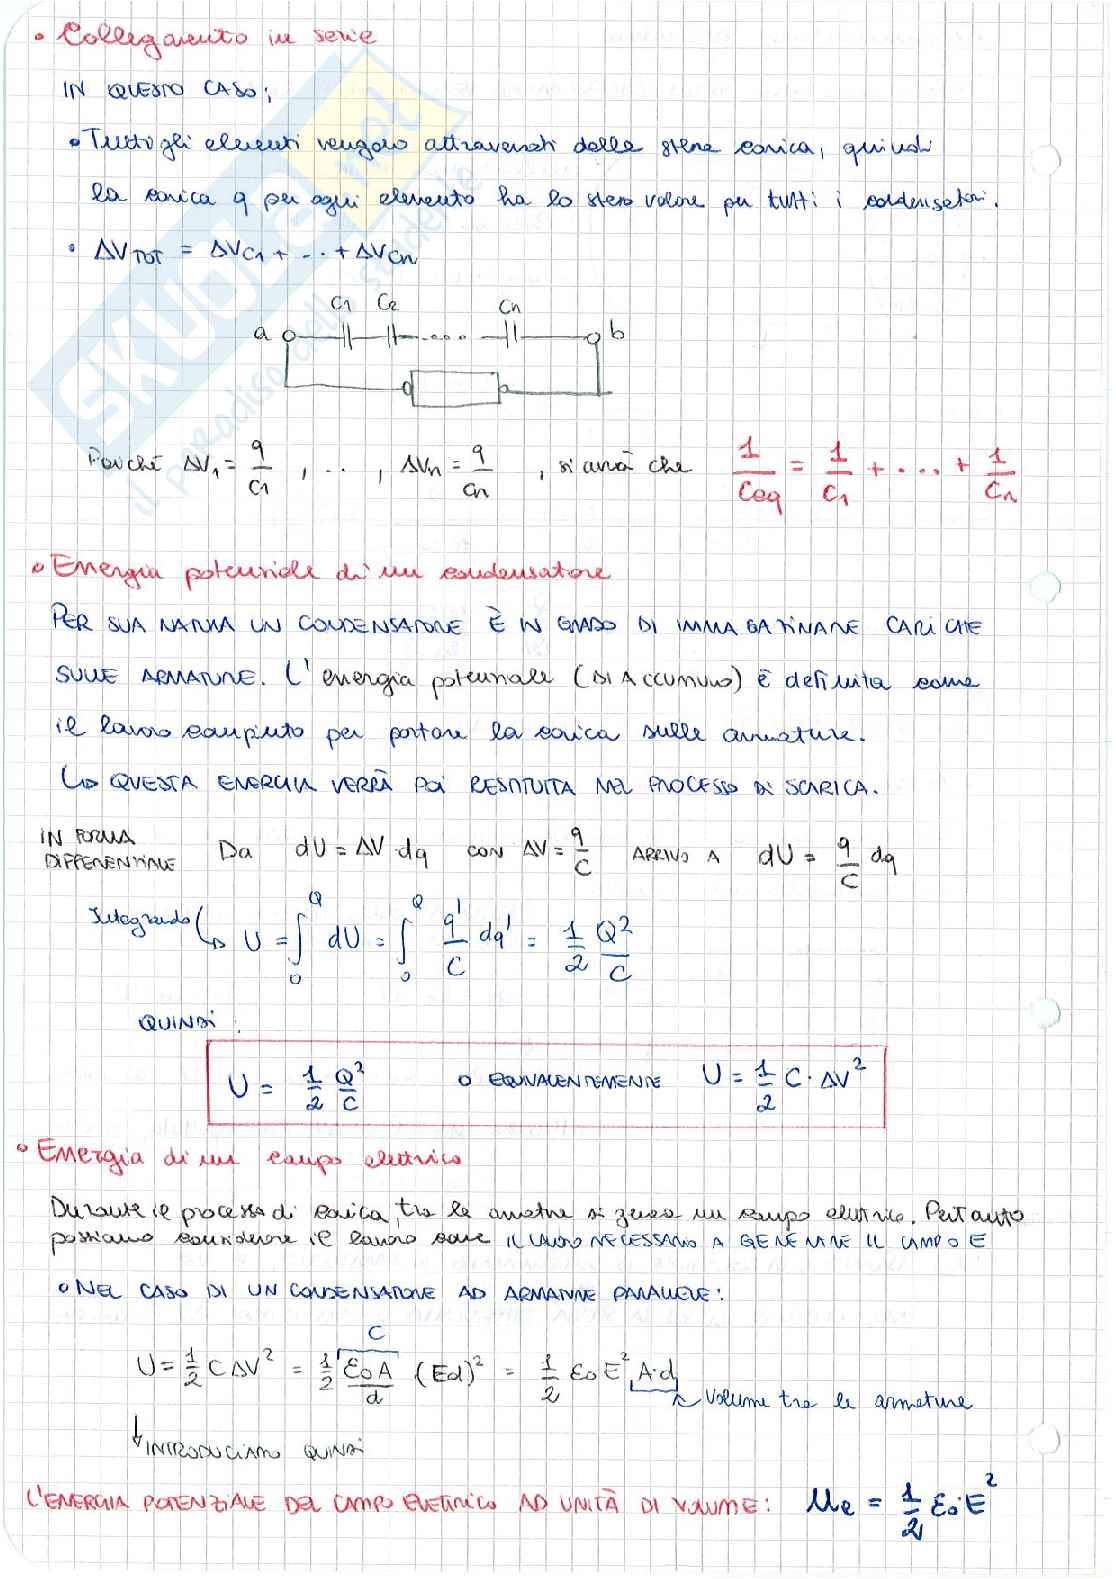 • Collegamento in serie
IN QUESTO CASO;
• Tutti gli elementi vengono attraversati dalla stessa carica, quindi
la carica q per ogni elemento ha lo stesso valore per tutti i condensatori.
• ΔV_TOT = ΔV_C1 + ... + ΔV_Cn
C1 C2 Cn
a b
Poiché ΔV1 = q/C1 , .. , ΔVn = q/Cn , si avrà che 1/Ceq = 1/C1 + ... + 1/Cn
• Energia potenziale di un condensatore
PER SUA NATURA UN CONDENSATORE È IN GRADO DI IMMAGAZZINARE CARICHE
SULLE ARMATURE. L'energia potenziale (DI ACCUMULO) è definita come
il lavoro compiuto per portare la carica sulle armature.
↳ QUESTA ENERGIA VERRÀ POI RESTITUITA NEL PROCESSO DI SCARICA.
IN FORMA
DIFFERENZIALE Da dU = ΔV · dq CON ΔV = q/C ARRIVO A dU = q/C dq
Integrando ↳ U = ∫₀^Q dU = ∫₀^Q q'/C dq' = 1/2 Q²/C
QUINDI :
U = 1/2 Q²/C O EQUIVALENTEMENTE U = 1/2 C · ΔV²
• Energia di un campo elettrico
Durante il processo di carica, tra le armature si genera un campo elettrico. Pertanto
possiamo considerare il lavoro come IL LAVORO NECESSARIO A GENERARE IL CAMPO E
• NEL CASO DI UN CONDENSATORE AD ARMATURE PARALLELE:
C
U = 1/2 C ΔV² = 1/2 ε₀A/d (Ed)² = 1/2 ε₀ E² A·d
Volume tra le armature
↓ INTRODUCIAMO QUINDI
L'ENERGIA POTENZIALE DEL CAMPO ELETTRICO AD UNITÀ DI VOLUME: Ue = 1/2 ε₀·E²
SKUOLA.net
il paradiso dello studente